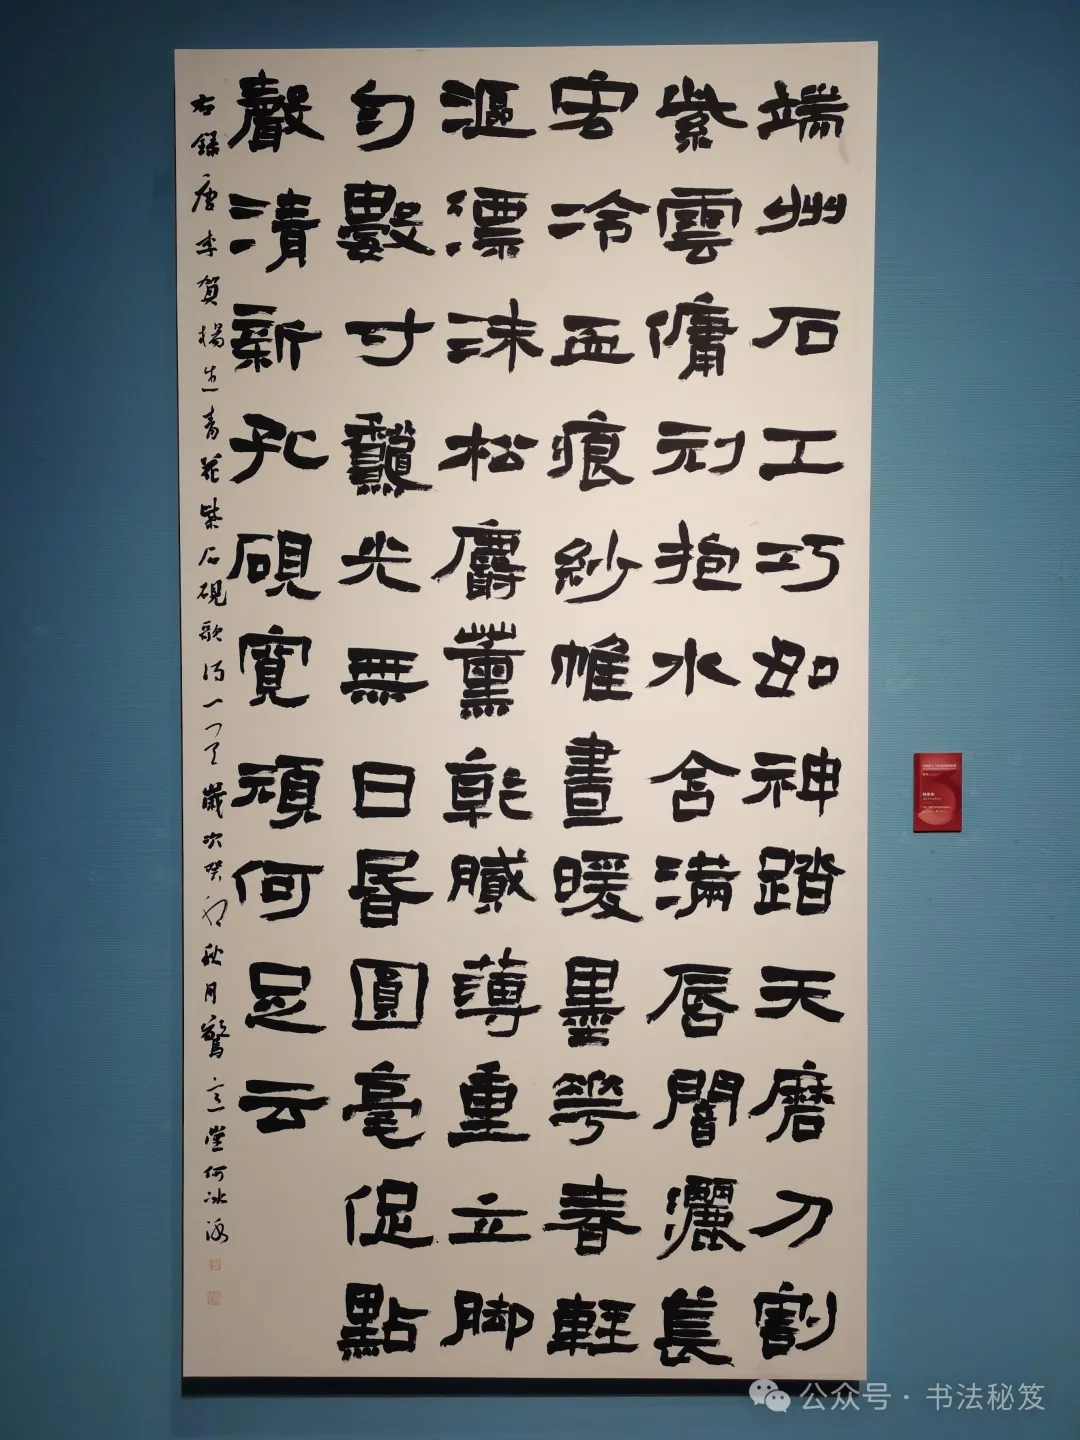 端州石工巧如神踏天磨刀割
紫雲傭刓抱水含滿唇闇灑萇
宏冷血痕紗帷晝暖墨華春輕
漚漂沫松麝薰乾膩薄重立脚
勻數寸龝光無日昏圓毫促點
聲清新孔硯寬頑何足云
右錄唐李賀楊生青花紫石硯歌詩一首歲次癸卯秋月驚堂何冰海
公众号·书法秘笈